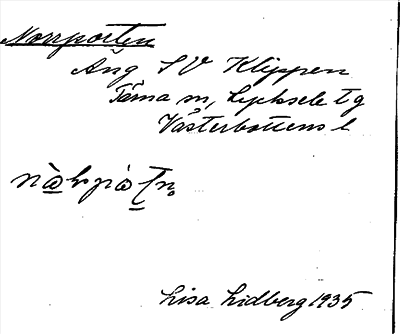 Norrporten
Äng S V Klippen
Tärna sn, Lycksele tg
Västerbottens l
Lisa Lidberg 1935